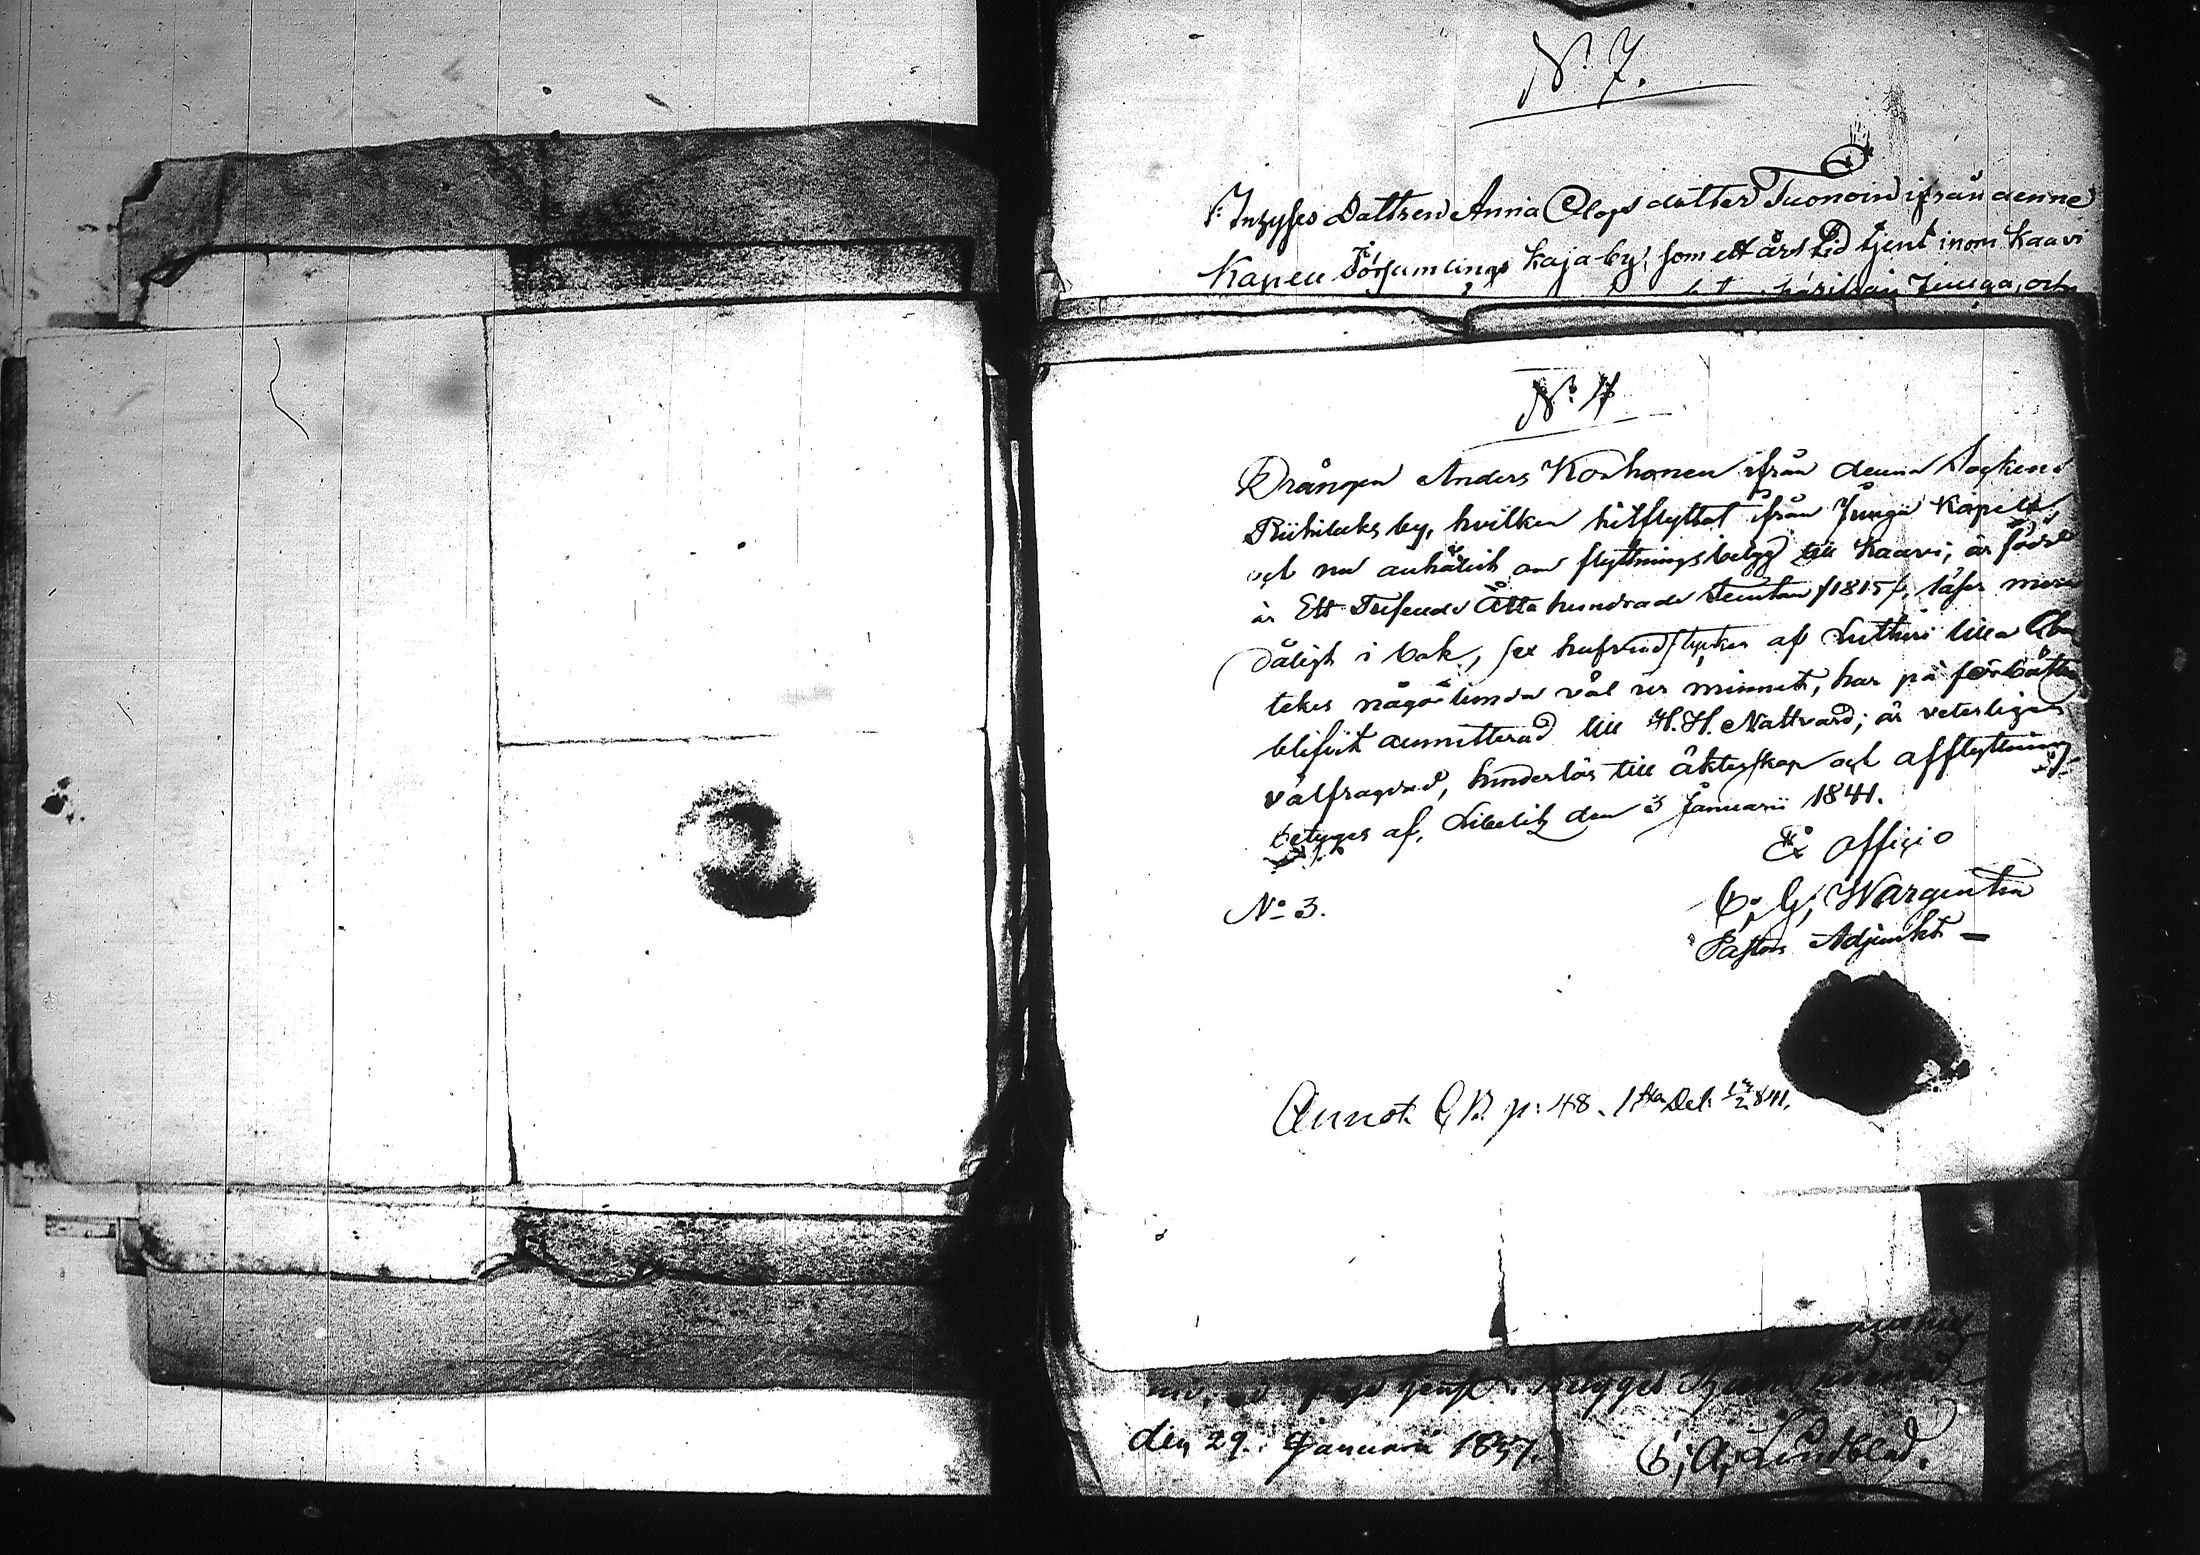 N:o 7.
Inhyses Dottren Anna Olofsdotter Tuonoin ifrån denne
Kapell Församlings Kajaby, som ett års tid tjent inom Kaavi
Juuga, och
N:o 4
Drängen Anders Korhonen ifrån denna Sockens
by, hvilken hitflyttat ifrån Juuga Kapell,
och nu anhållit om flyttningsbetyg till Kaavi; är född
år Ett Tusende Åtta hundrade femton /1815/, läser
dåligt i bok, sex hufvudstycken af Lutheri lilla
tekes någorlunda väl ur minnet, har på förbättr
blifvit admitterad till H. H. Nattvard; är veterligen
välfragdad, hinderlös till äktenskap och afflyttning,
betyges af, Libelitz den 3 Januarii 1841.
Ex officio
C. G. Wargentin
Pastors Adjunkt
No 3.
Annot. C. B. p: 48. 1sta Del. 841.
den 29. Januarii 1837.
C. A. Lindblad.